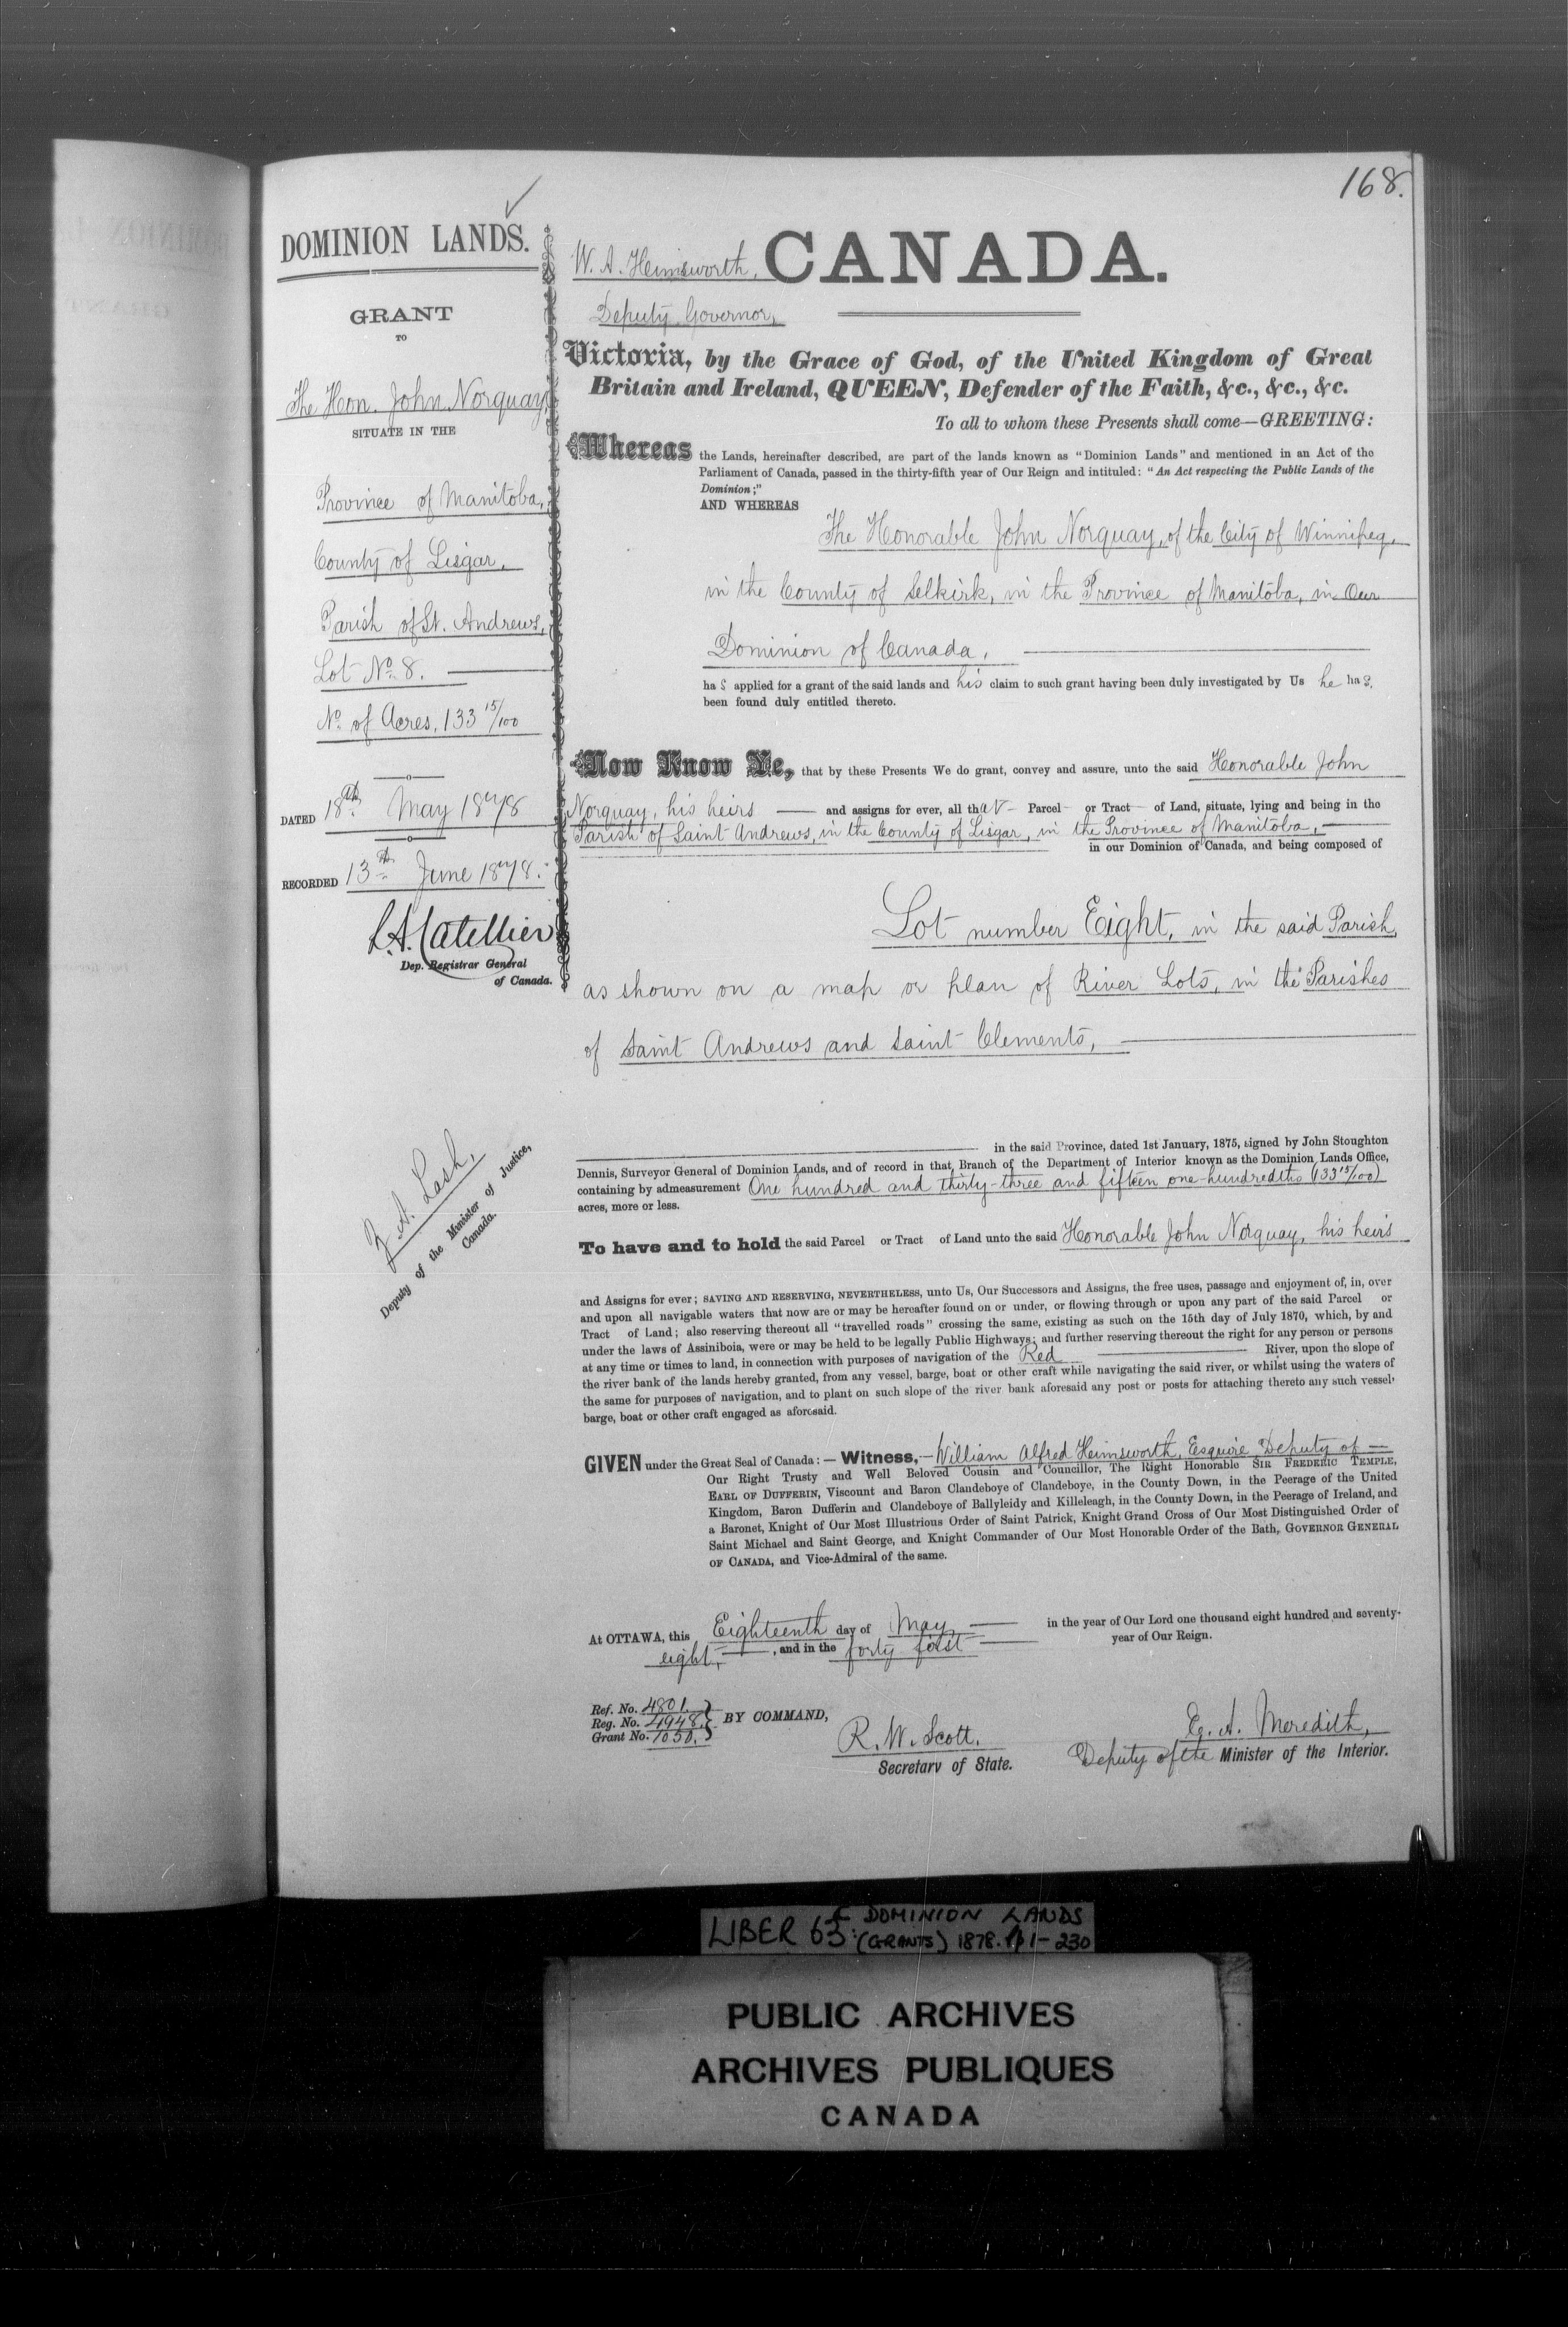 168.
DOMINION LANDS.
GRANT
TO
The Hon. John Norquay,
SITUATE IN THE
Province of Manitoba,
County of Lisgar,
Parish of St. Andrews,
Lot No. 8.
No. of Acres, 133 15/100
DATED 18th May 1878
RECORDED 13th June 1878.
L.A. Catellier
Dep. Registrar General
of Canada.
Z. A. Lash,
Deputy of the Minister of Justice,
Canada.
W. A. Himsworth,
CANADA.
Deputy Governor,
Victoria, by the Grace of God, of the United Kingdom of Great
Britain and Ireland, QUEEN, Defender of the Faith, &c., &c., &c.
To all to whom these Presents shall come—GREETING:
Whereas the Lands, hereinafter described, are part of the lands known as "Dominion Lands" and mentioned in an Act of the
Parliament of Canada, passed in the thirty-fifth year of Our Reign and intituled: "An Act respecting the Public Lands of the
Dominion;"
AND WHEREAS
The Honorable John Norquay, of the City of Winnipeg,
in the County of Selkirk, in the Province of Manitoba, in Our
Dominion of Canada,
has applied for a grant of the said lands and his claim to such grant having been duly investigated by Us he has
been found duly entitled thereto.
Now Know Ye, that by these Presents We do grant, convey and assure, unto the said Honorable John
Norquay, his heirs — and assigns for ever, all that Parcel or Tract of Land, situate, lying and being in the
Parish of Saint Andrews, in the County of Lisgar, in the Province of Manitoba,
in our Dominion of Canada, and being composed of
Lot number Eight, in the said Parish,
as shown on a map or plan of River Lots, in the Parishes
of Saint Andrews and Saint Clements,
in the said Province, dated 1st January, 1875, signed by John Stoughton
Dennis, Surveyor General of Dominion Lands, and of record in that Branch of the Department of Interior known as the Dominion Lands Office,
containing by admeasurement One hundred and thirty-three and fifteen one-hundredths (133 15/100)
acres, more or less.
To have and to hold the said Parcel or Tract of Land unto the said Honorable John Norquay, his heirs
and Assigns for ever; SAVING AND RESERVING, NEVERTHELESS, unto Us, Our Successors and Assigns, the free uses, passage and enjoyment of, in, over
and upon all navigable waters that now are or may be hereafter found on or under, or flowing through or upon any part of the said Parcel or
Tract of Land; also reserving thereout all "travelled roads" crossing the same, existing as such on the 15th day of July 1870, which, by and
under the laws of Assiniboia, were or may be held to be legally Public Highways; and further reserving thereout the right for any person or persons
at any time or times to land, in connection with purposes of navigation of the Red River, upon the slope of
the river bank of the lands hereby granted, from any vessel, barge, boat or other craft while navigating the said river, or whilst using the waters of
the same for purposes of navigation, and to plant on such slope of the river bank aforesaid any post or posts for attaching thereto any such vessel,
barge, boat or other craft engaged as aforesaid.
GIVEN under the Great Seal of Canada: — Witness, — William Alfred Himsworth, Esquire, Deputy of —
Our Right Trusty and Well Beloved Cousin and Councillor, The Right Honorable SIR FREDERIC TEMPLE,
EARL OF DUFFERIN, Viscount and Baron Clandeboye of Clandeboye, in the County Down, in the Peerage of the United
Kingdom, Baron Dufferin and Clandeboye of Ballyleidy and Killeleagh, in the County Down, in the Peerage of Ireland, and
a Baronet, Knight of Our Most Illustrious Order of Saint Patrick, Knight Grand Cross of Our Most Distinguished Order of
Saint Michael and Saint George, and Knight Commander of Our Most Honorable Order of the Bath, GOVERNOR GENERAL
OF CANADA, and Vice-Admiral of the same.
At OTTAWA, this Eighteenth day of May, in the year of Our Lord one thousand eight hundred and seventy-
eight, and in the forty first year of Our Reign.
Ref. No. 4801.
Reg. No. 4948.
Grant No. 1050.
BY COMMAND,
R. W. Scott.
Secretary of State.
E. A. Meredith,
Deputy of the Minister of the Interior.
LIBER 63: DOMINION LANDS
(GRANTS) 1878. pp 1-230
PUBLIC ARCHIVES
ARCHIVES PUBLIQUES
CANADA